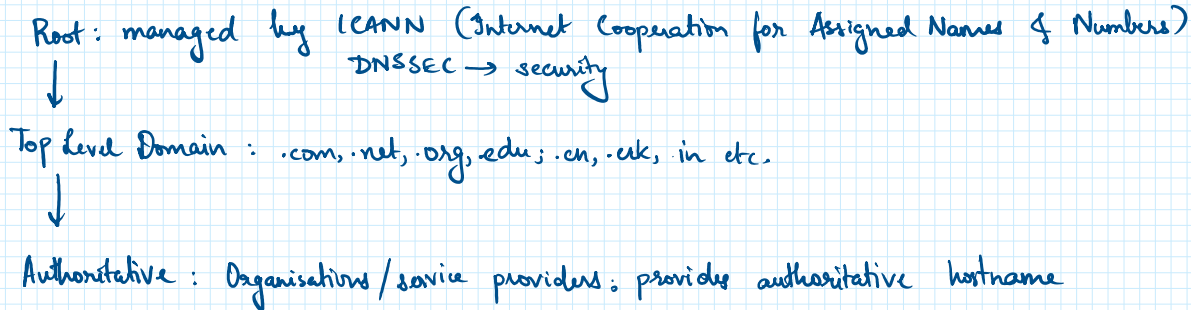 Root: managed by ICANN (Internet Cooperation for Assigned Names & Numbers)
↓ DNSSEC → security
Top Level Domain : .com, .net, .org, .edu; .cn, .uk, .in etc.
↓
Authoritative : Organisations/service providers: provides authoritative hostname